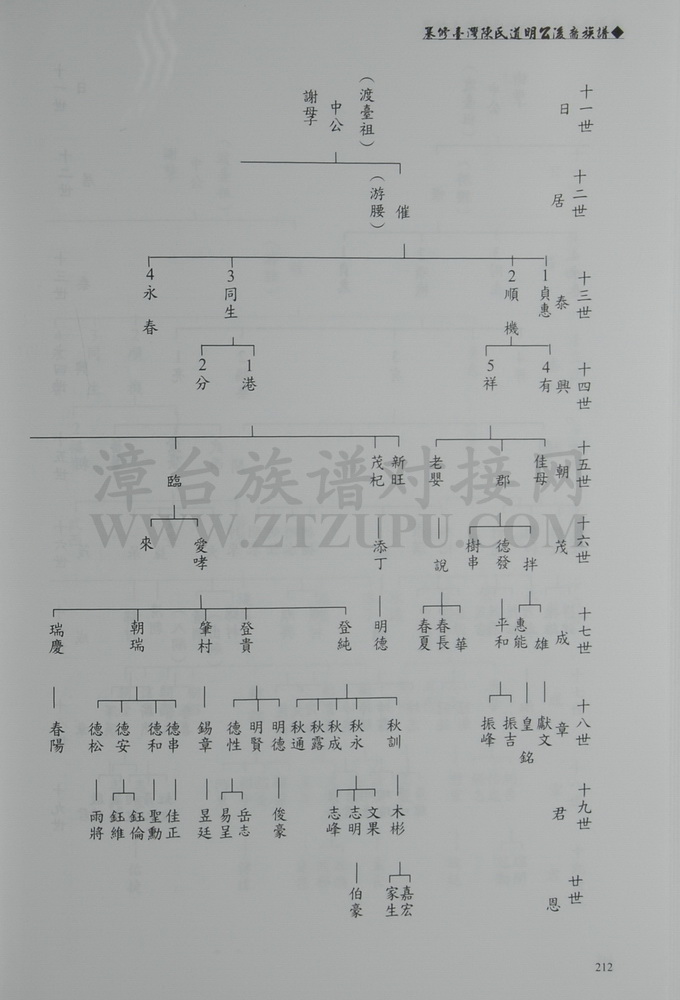 纂修臺灣陳氏道明公後裔族譜◆
十一世 日
(渡臺祖)
中公
謝母子
十二世 居
催
(游腰)
十三世 泰
1貞惠
2順機
3同生
4永春
十四世 興
4有
5祥
1港
2分
十五世 朝
佳母
郡
老嬰
新旺
茂杞
臨
十六世 茂
拌
德發
樹串
說
添丁
愛哮
來
十七世 成
雄
惠能
平和
華
春長
春夏
明德
登純
登貴
肇村
朝瑞
瑞慶
十八世 章
獻文
皇銘
振吉
振峰
秋訓
秋永
秋成
秋露
秋通
明德
明賢
德性
錫章
德串
德和
德安
德松
春陽
十九世 君
木彬
文果
志明
志峰
俊豪
岳志
易呈
昱廷
佳正
聖勳
鈺倫
鈺維
雨將
廿世 恩
嘉宏
家生
伯豪
漳台族谱对接网
WWW.ZTZUPU.COM
212